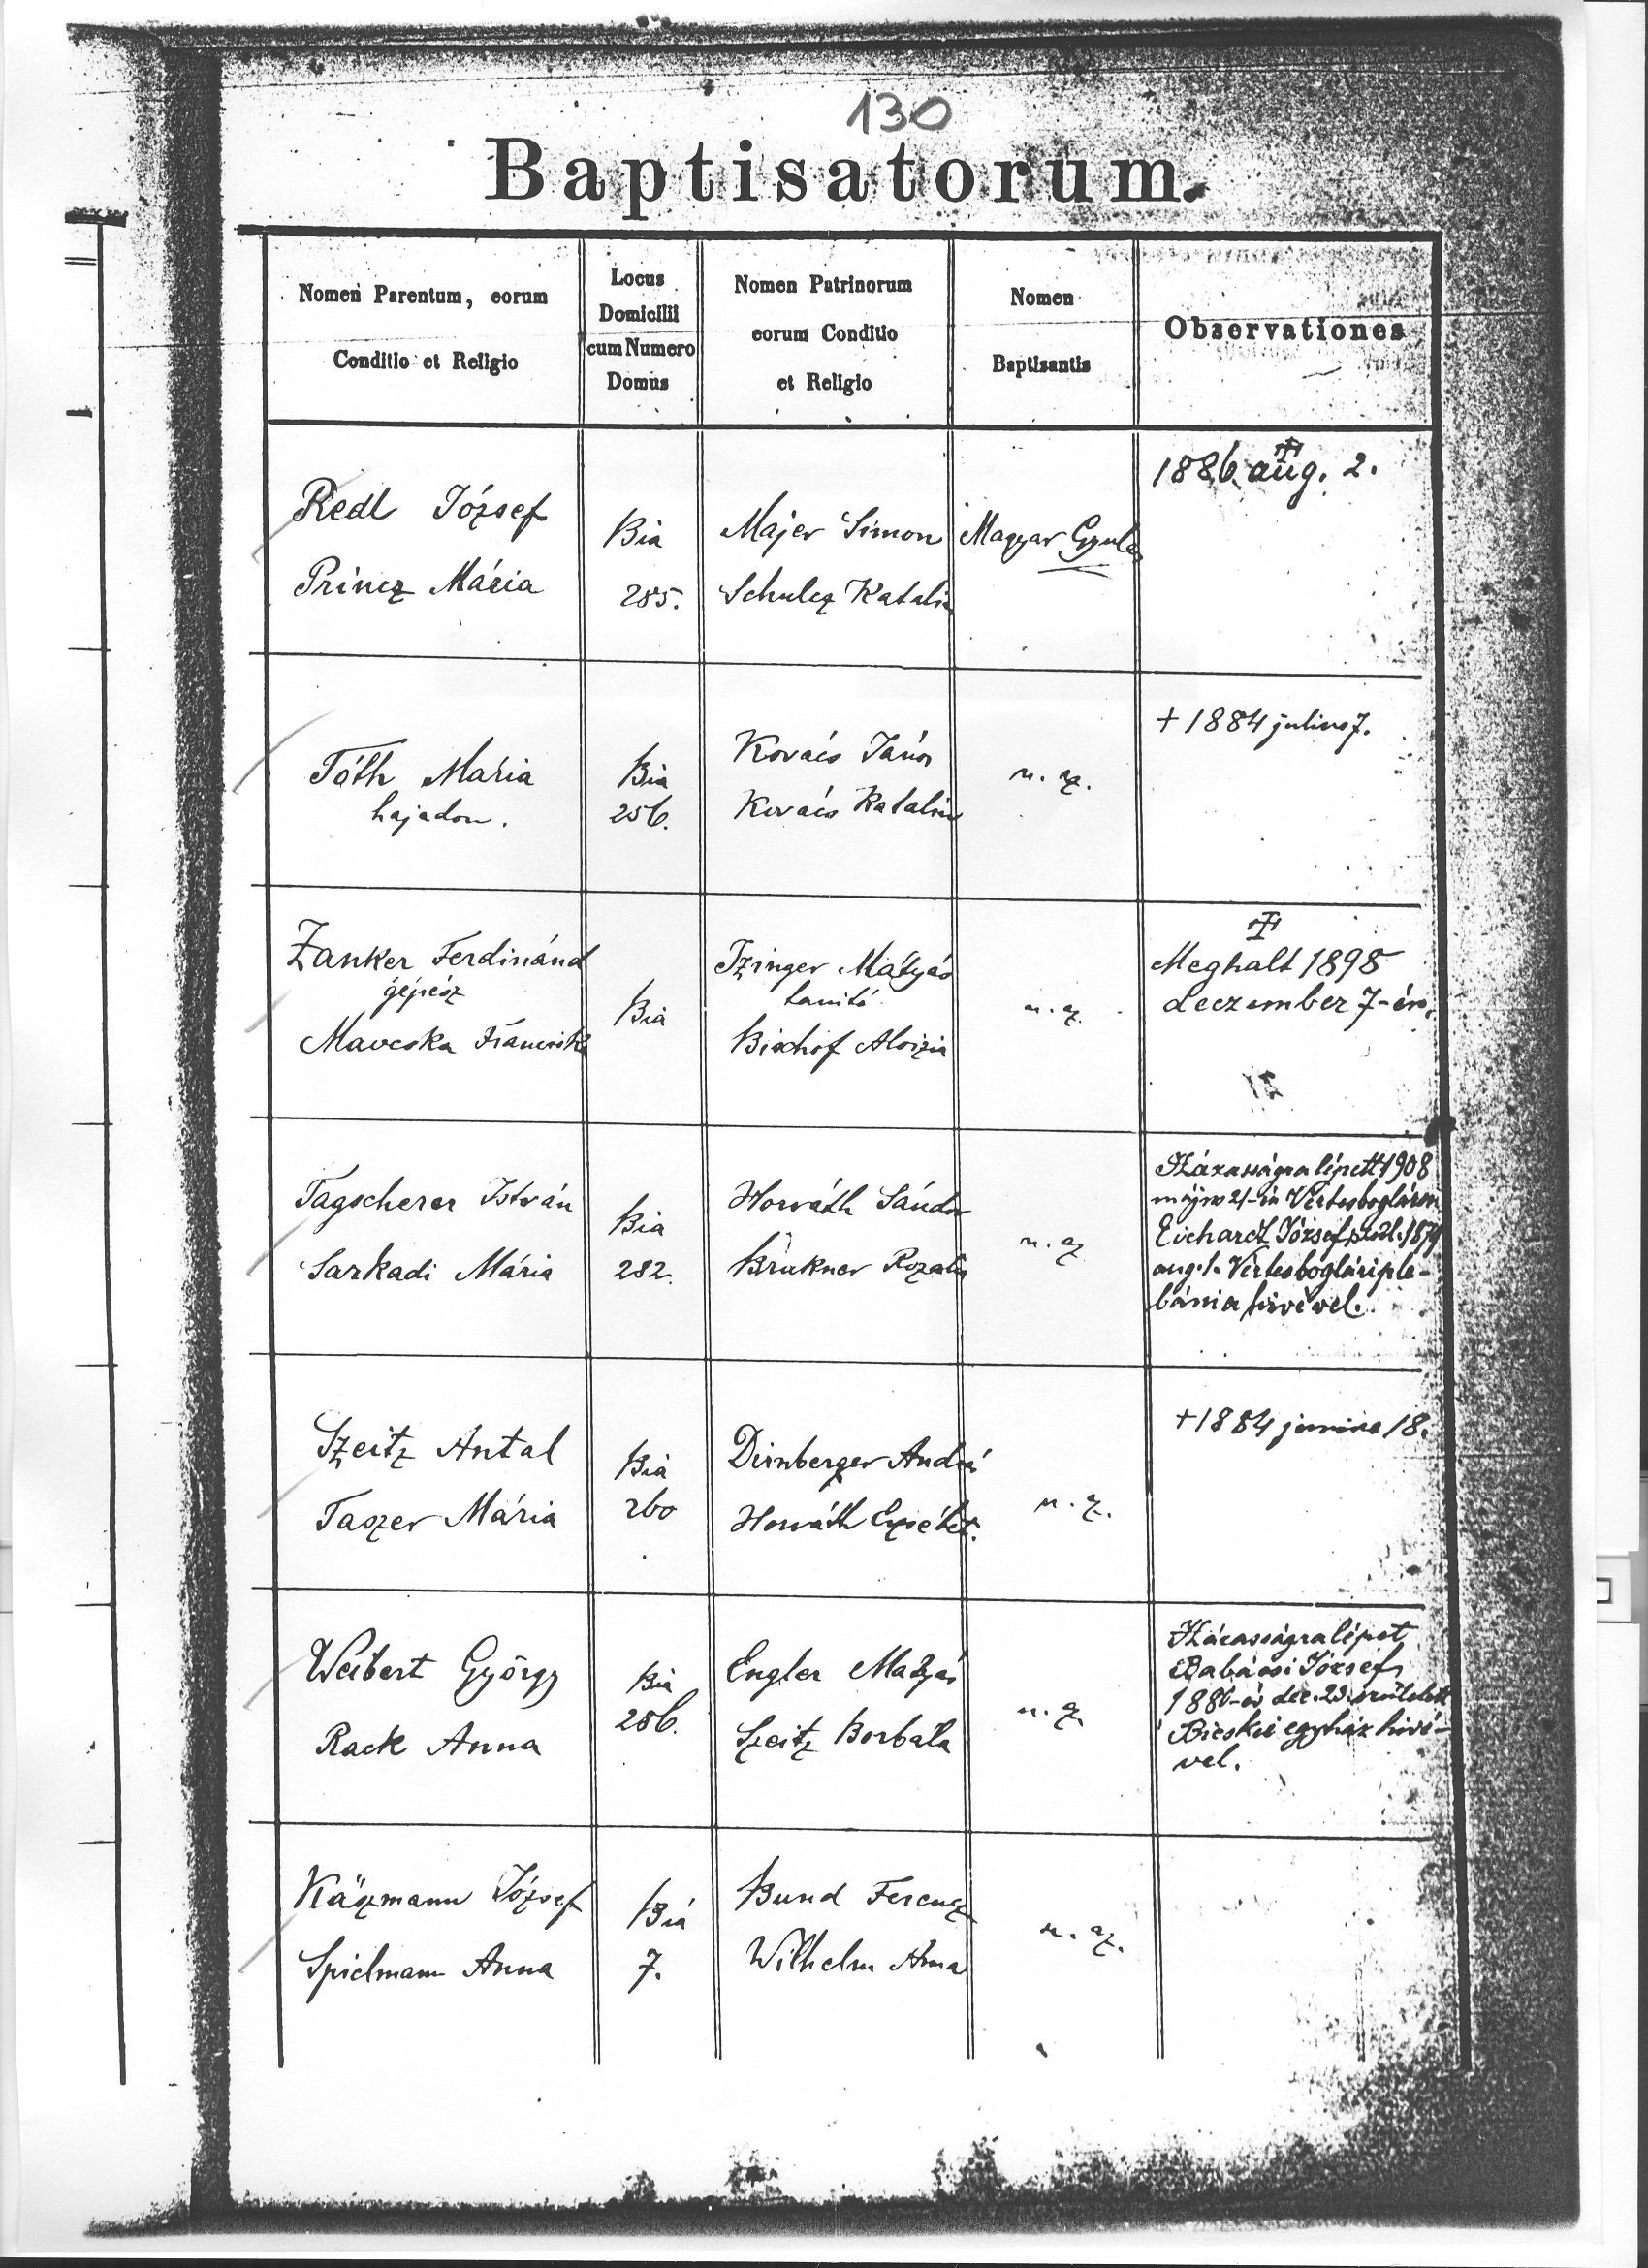 130
Baptisatorum.
Nomen Parentum, eorum
Conditio et Religio
Locus
Domicilii
cum Numero
Domus
Nomen Patrinorum
eorum Conditio
et Religio
Nomen
Baptisantis
Observationes
Redl József
Princz Mária
Bia
285.
Majer Simon
Schulcz Katalin
Magyar Gyula
1886. aug. 2.
Tóth Mária
hajadon.
Bia
256.
Kovács János
Kovács Katalin
u. az.
+ 1884 julius 7.
Zanker Ferdinánd
gépész
Mavcska
Bia
Tzinger Mátyás
tanító
Bischof Aloizia
u. az.
Meghalt 1898
deczember 7-én.
Tagscherer István
Sarkadi Mária
Bia
282.
Horváth Sándor
Brukner Rozalia
u. az
Házasságra lépett 1908
május 21-én Vértesbogláron
József szül. 1879
aug. 1. Vértesboglári ple-
bánia hivével.
Szeitz Antal
Taszer Mária
Bia
260
Dirnberger András
Horváth Erzsébet.
u. az.
+ 1884 junius 18.
Weibert György
Rack Anna
Bia
286.
Engler Mátyás
Szeitz Borbála
u. az.
Házasságra lépet
Babácsi József
1880-ós dec. 23. született
Bicskei egyház hivé-
vel.
Käszmann József
Spielmann Anna
Bia
7.
Bund Ferencz
Wilhelm Anna
u. az.